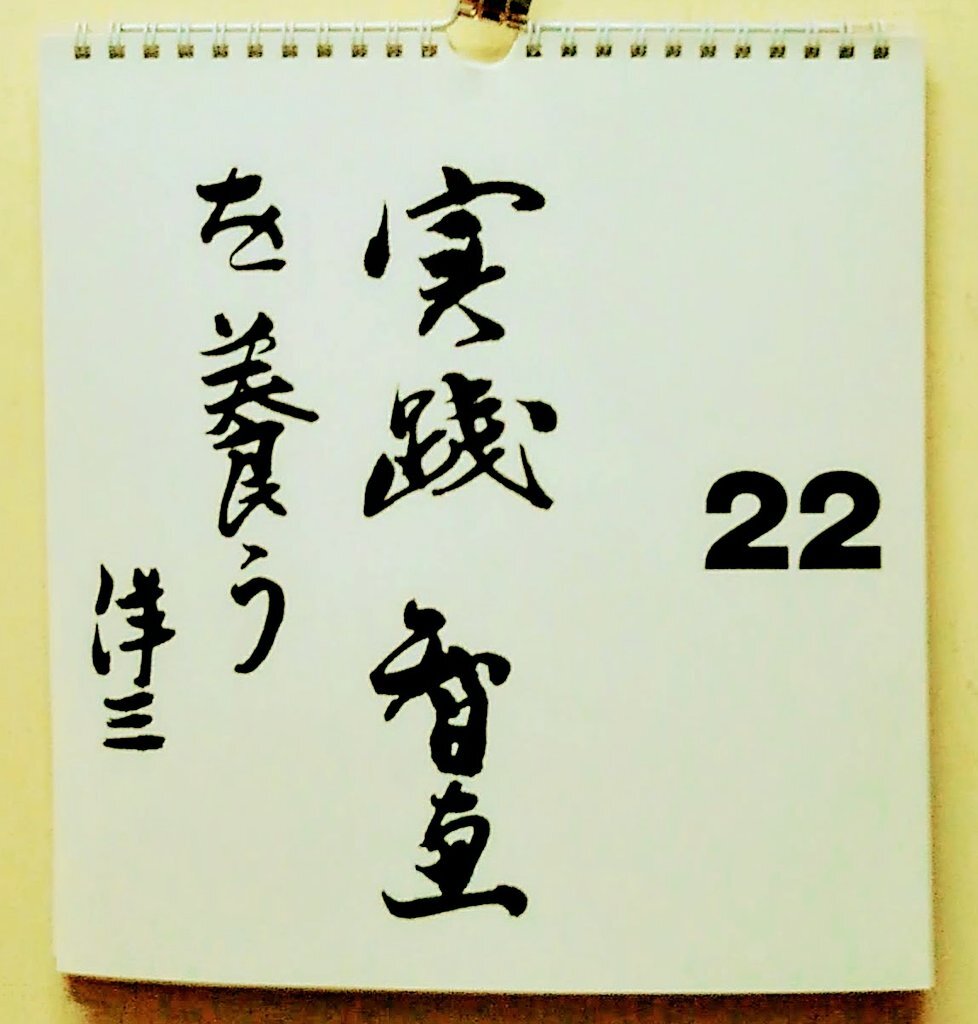 22
実践智恵
を養う
洋三